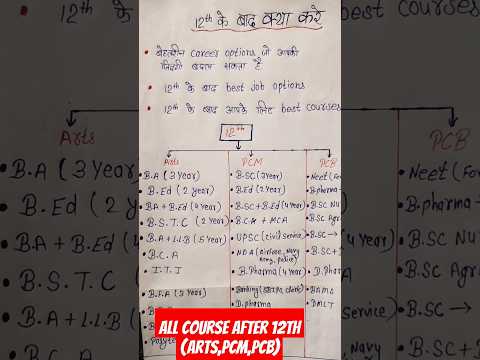 12th के बाद क्या करे
• बेहतरीन career options जो आपकी
जिंदगी बदल सकता है
• 12th के बाद best job options
• 12th के बाद आपके लिए best courses
12th
Arts PCM PCB
• B.A (3 Year) • B.SC (3 Year) • Neet (
• B.Ed (2 year) • B.Ed (2 Year) • B.pharma
• BA + B.Ed (4 Year) • B.SC + B.Ed (4 Year) • B.SC Nu
• B.S.T.C (2 Year) • B.C.A + MCA • B.SC Agr
• B.A + L.L.B (5 Year) • UPSC (civil service) • B.SC →
• B.C.A • NDA (Airforce, Navy • B.SC +
Army, police)
• I.T.I • B.Pharma (4 Year) • D.Phar
• B.F.A (3 Year) • Banking • BAMS
• D.pharma • DMLT
Arts
• B.A (3 Year
• B.Ed (2
• B.A + B.Ed (
• B.S.T.C (
• B.A + L.L.B (
PCB
Neet (Fo
B.pharma
B.SC Nu
B.SC →
B.SC Agr
B.SC →
B.SC +
ALL COURSE AFTER 12TH
(ARTS,PCM,PCB)